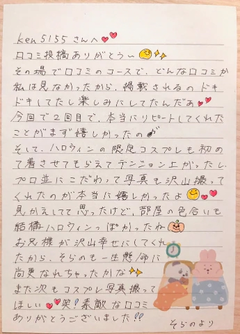 ken5155さんへ
口コミ投稿ありがとうぅ
その場で口コミのコースで、どんな口コミか
私は見なかったから、掲載されるのドキ
ドキしてたし楽しみにしてたんだぁ
今回で2回目で、本当にリピートしてくれた
ことがまず嬉しかったの
そして、ハロウィンの限定コスプレも初め
て着させてもらえてテンション上がったし
プロ並にこだわって写真も沢山撮っ
てくれたのが本当に嬉しかったよ
見かえしてて思ったけど、部屋の色合いも
結構ハロウィンっぽかったね
お兄様が沢山幸せにしてくれ
たから、そらのも一生懸命に
尚更なれちゃったかな
また次もコスプレ写真撮って
ほしい 笑!素敵な口コミ
ありがとうございました!!
そらのより